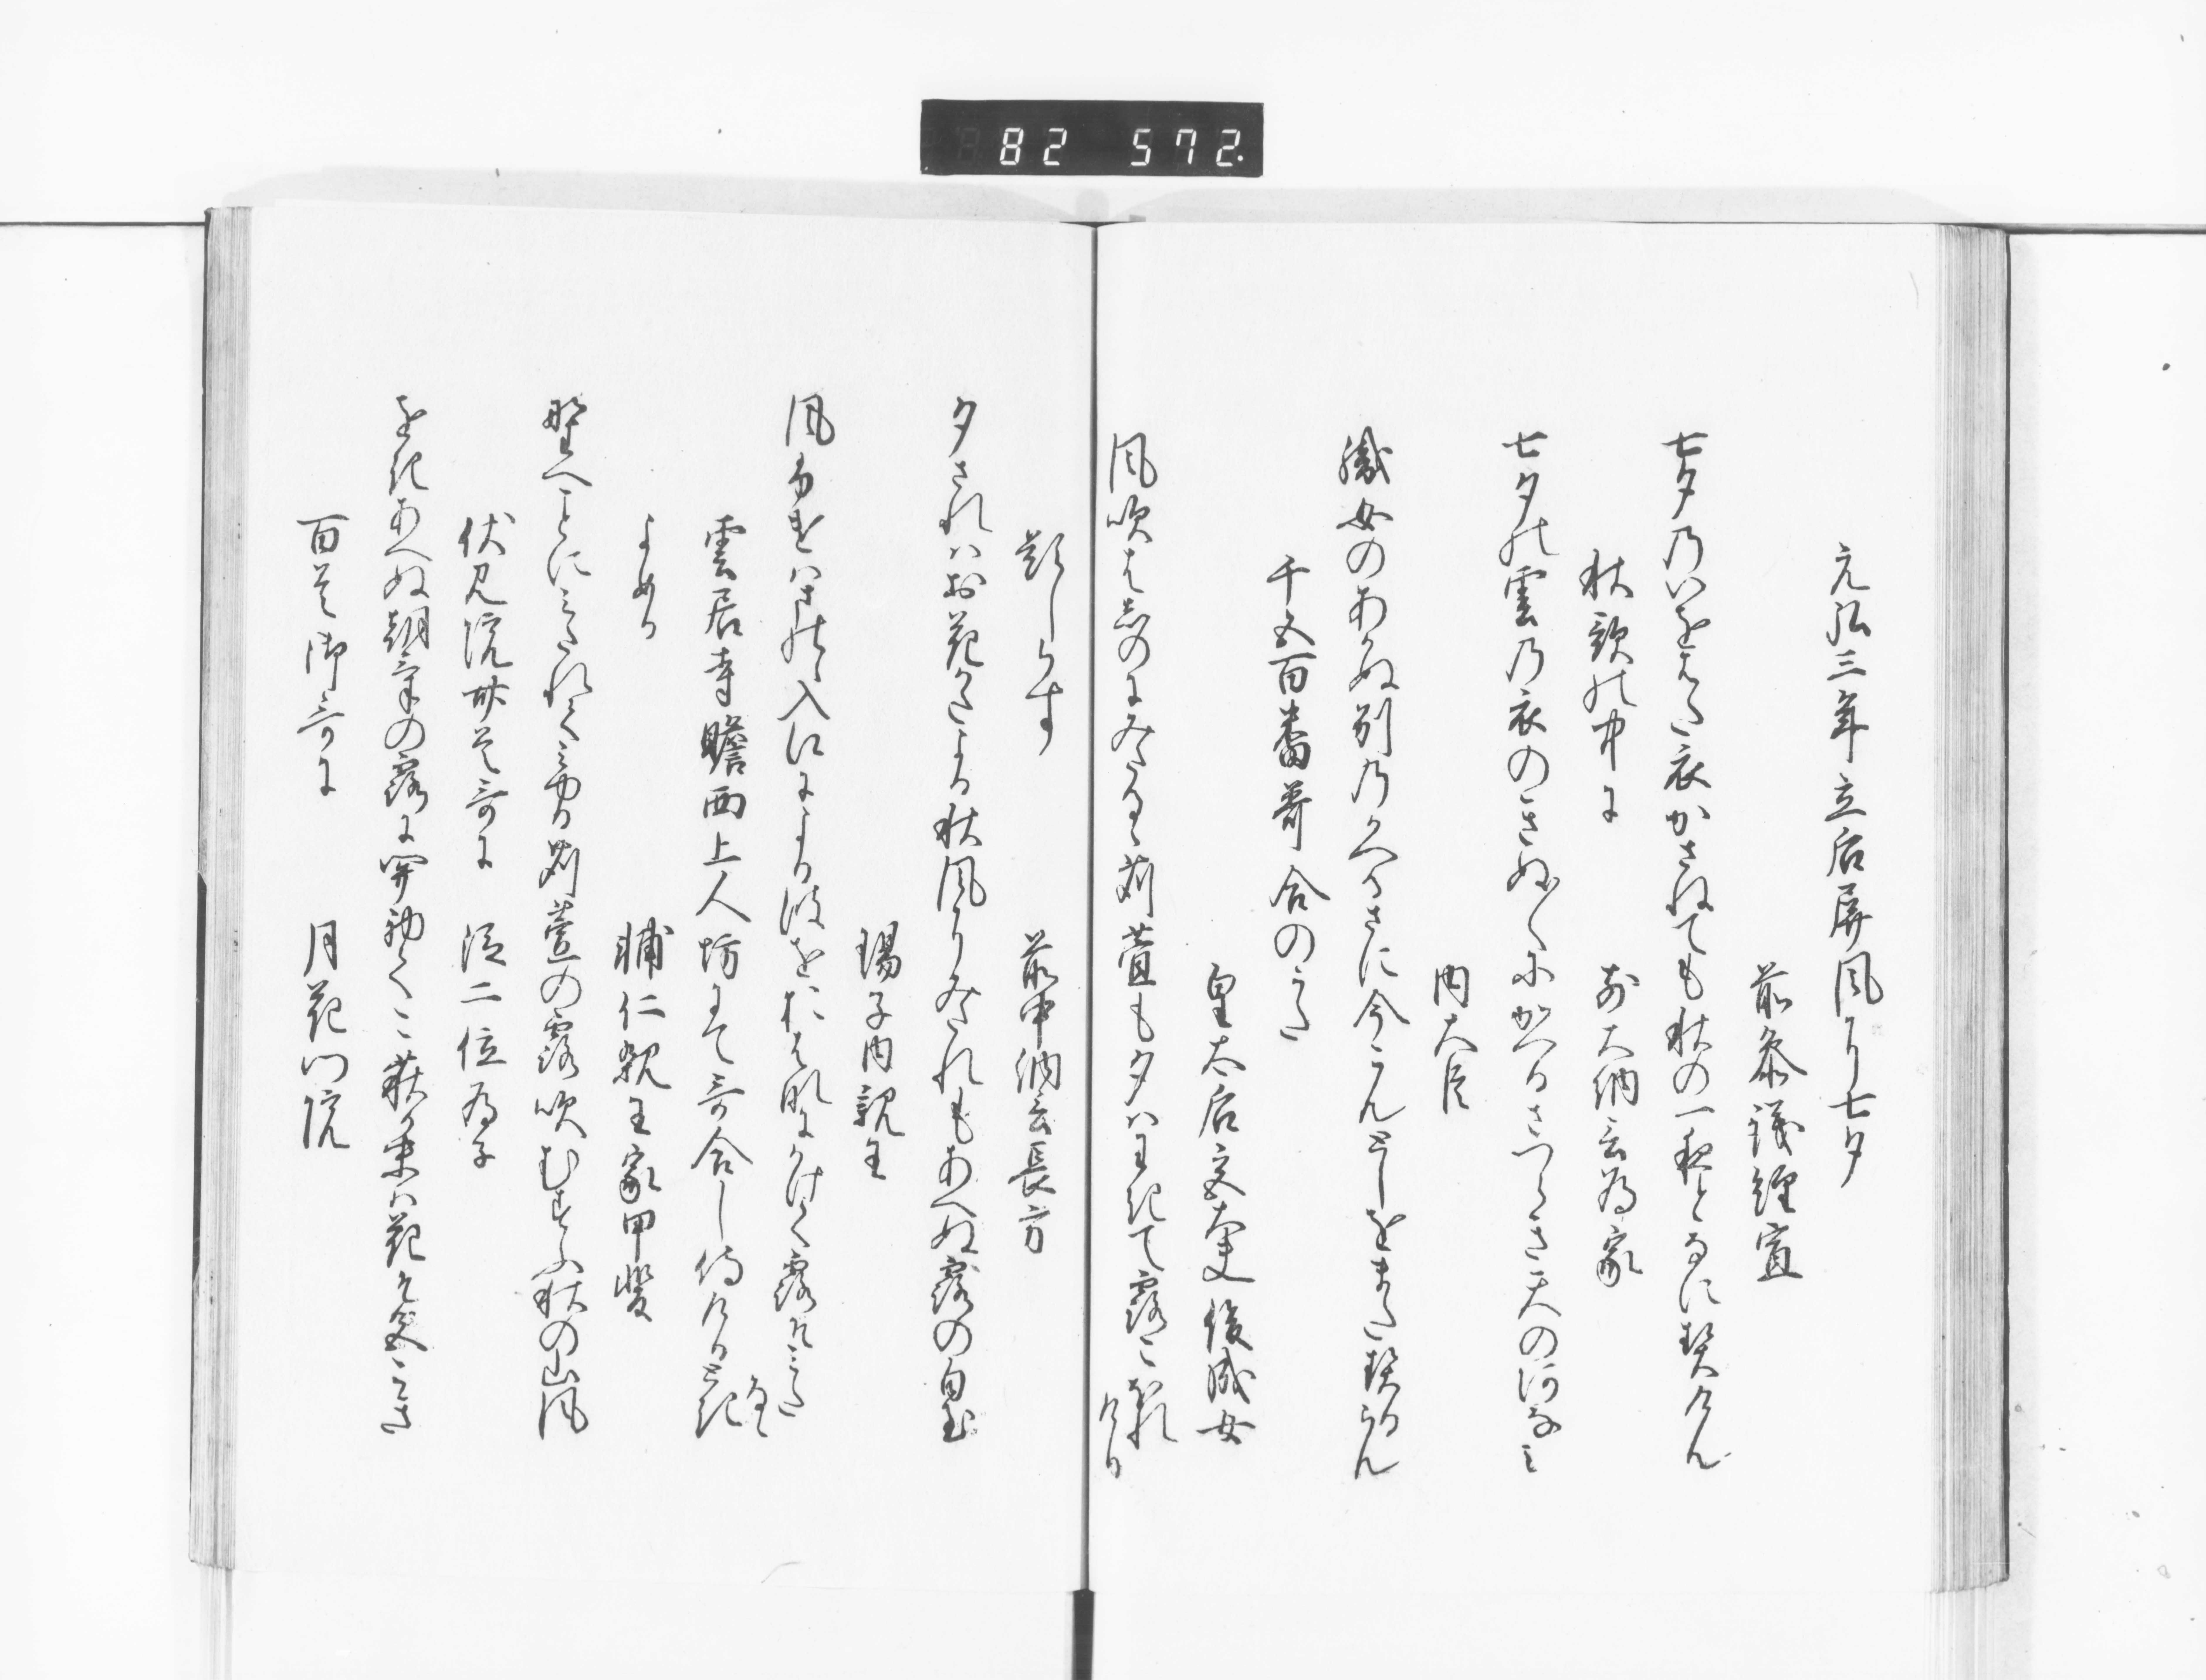 82 572.
元弘三年立后屏風に七夕
前参議経宣
七夕乃いをはた衣かさねても秋の一夜となに契けん
秋歌の中に
前大納言為家
七夕の雲乃衣のきぬ〱にかへるさつらき天の河なみ
内大臣
織女のあかぬ別乃かへるさに今こんとしをまた契るらん
千五百番哥合のうた
皇太后宮大夫俊成女
風吹は玉のにみたるゝ苅萱も夕はわきて露こほれけり
題しらす
前中納言長方
夕されはお花かたよる秋風にみたれもあへぬ露の白玉
瑒子内親王
風の入江による波をおはなにかけて露そみたるゝ
雲居寺瞻西上人坊にて哥合し侍けるとき
よめる
輔仁親王家甲斐
野へことにみたれてみゆる苅萱の露吹むすふ秋の山風
伏見院卅首哥に
従二位為子
をきあへぬ朝の露に萩か末は花そ
百首御哥に
月花門院